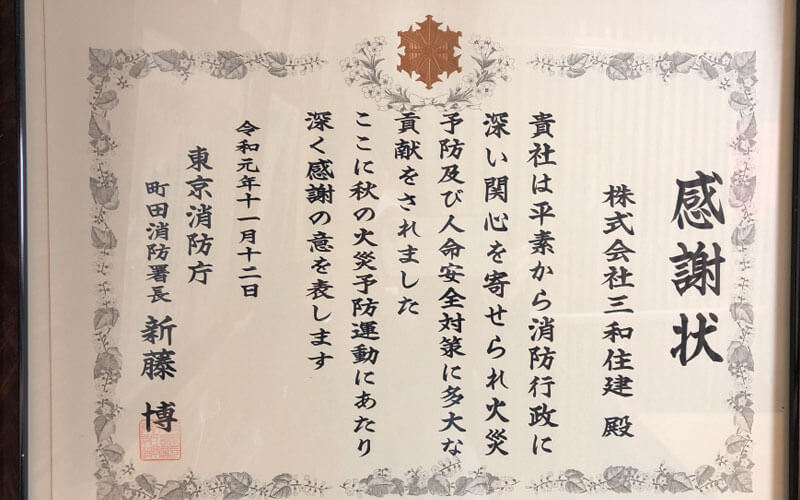 感謝状
株式会社三和住建 殿
貴社は平素から消防行政に
深い関心を寄せられ火災
予防及び人命安全対策に多大な
貢献をされました
ここに秋の火災予防運動にあたり
深く感謝の意を表します
令和元年十一月十二日
東京消防庁
町田消防署長 新藤 博